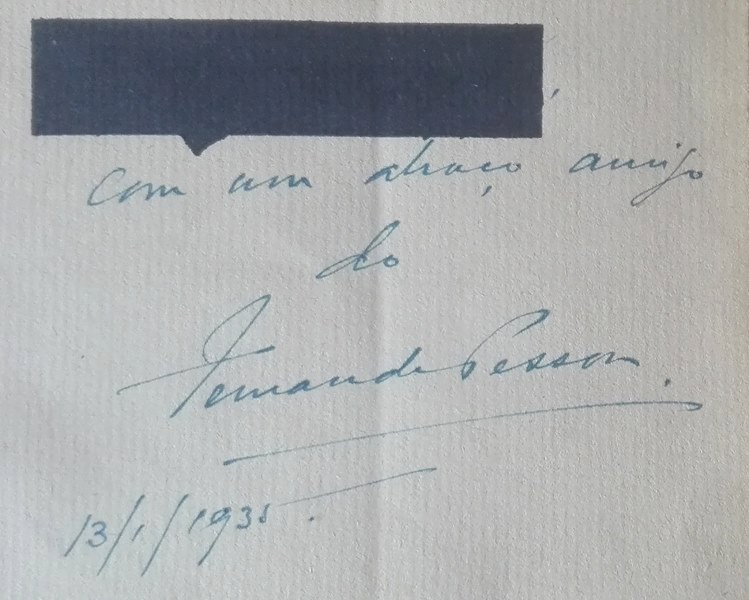 com um abraço amigo
do
Fernando Pessoa.
13/1/1935.